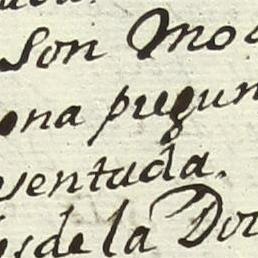 Son Mo
ona pregun
sentada.
esde la Do